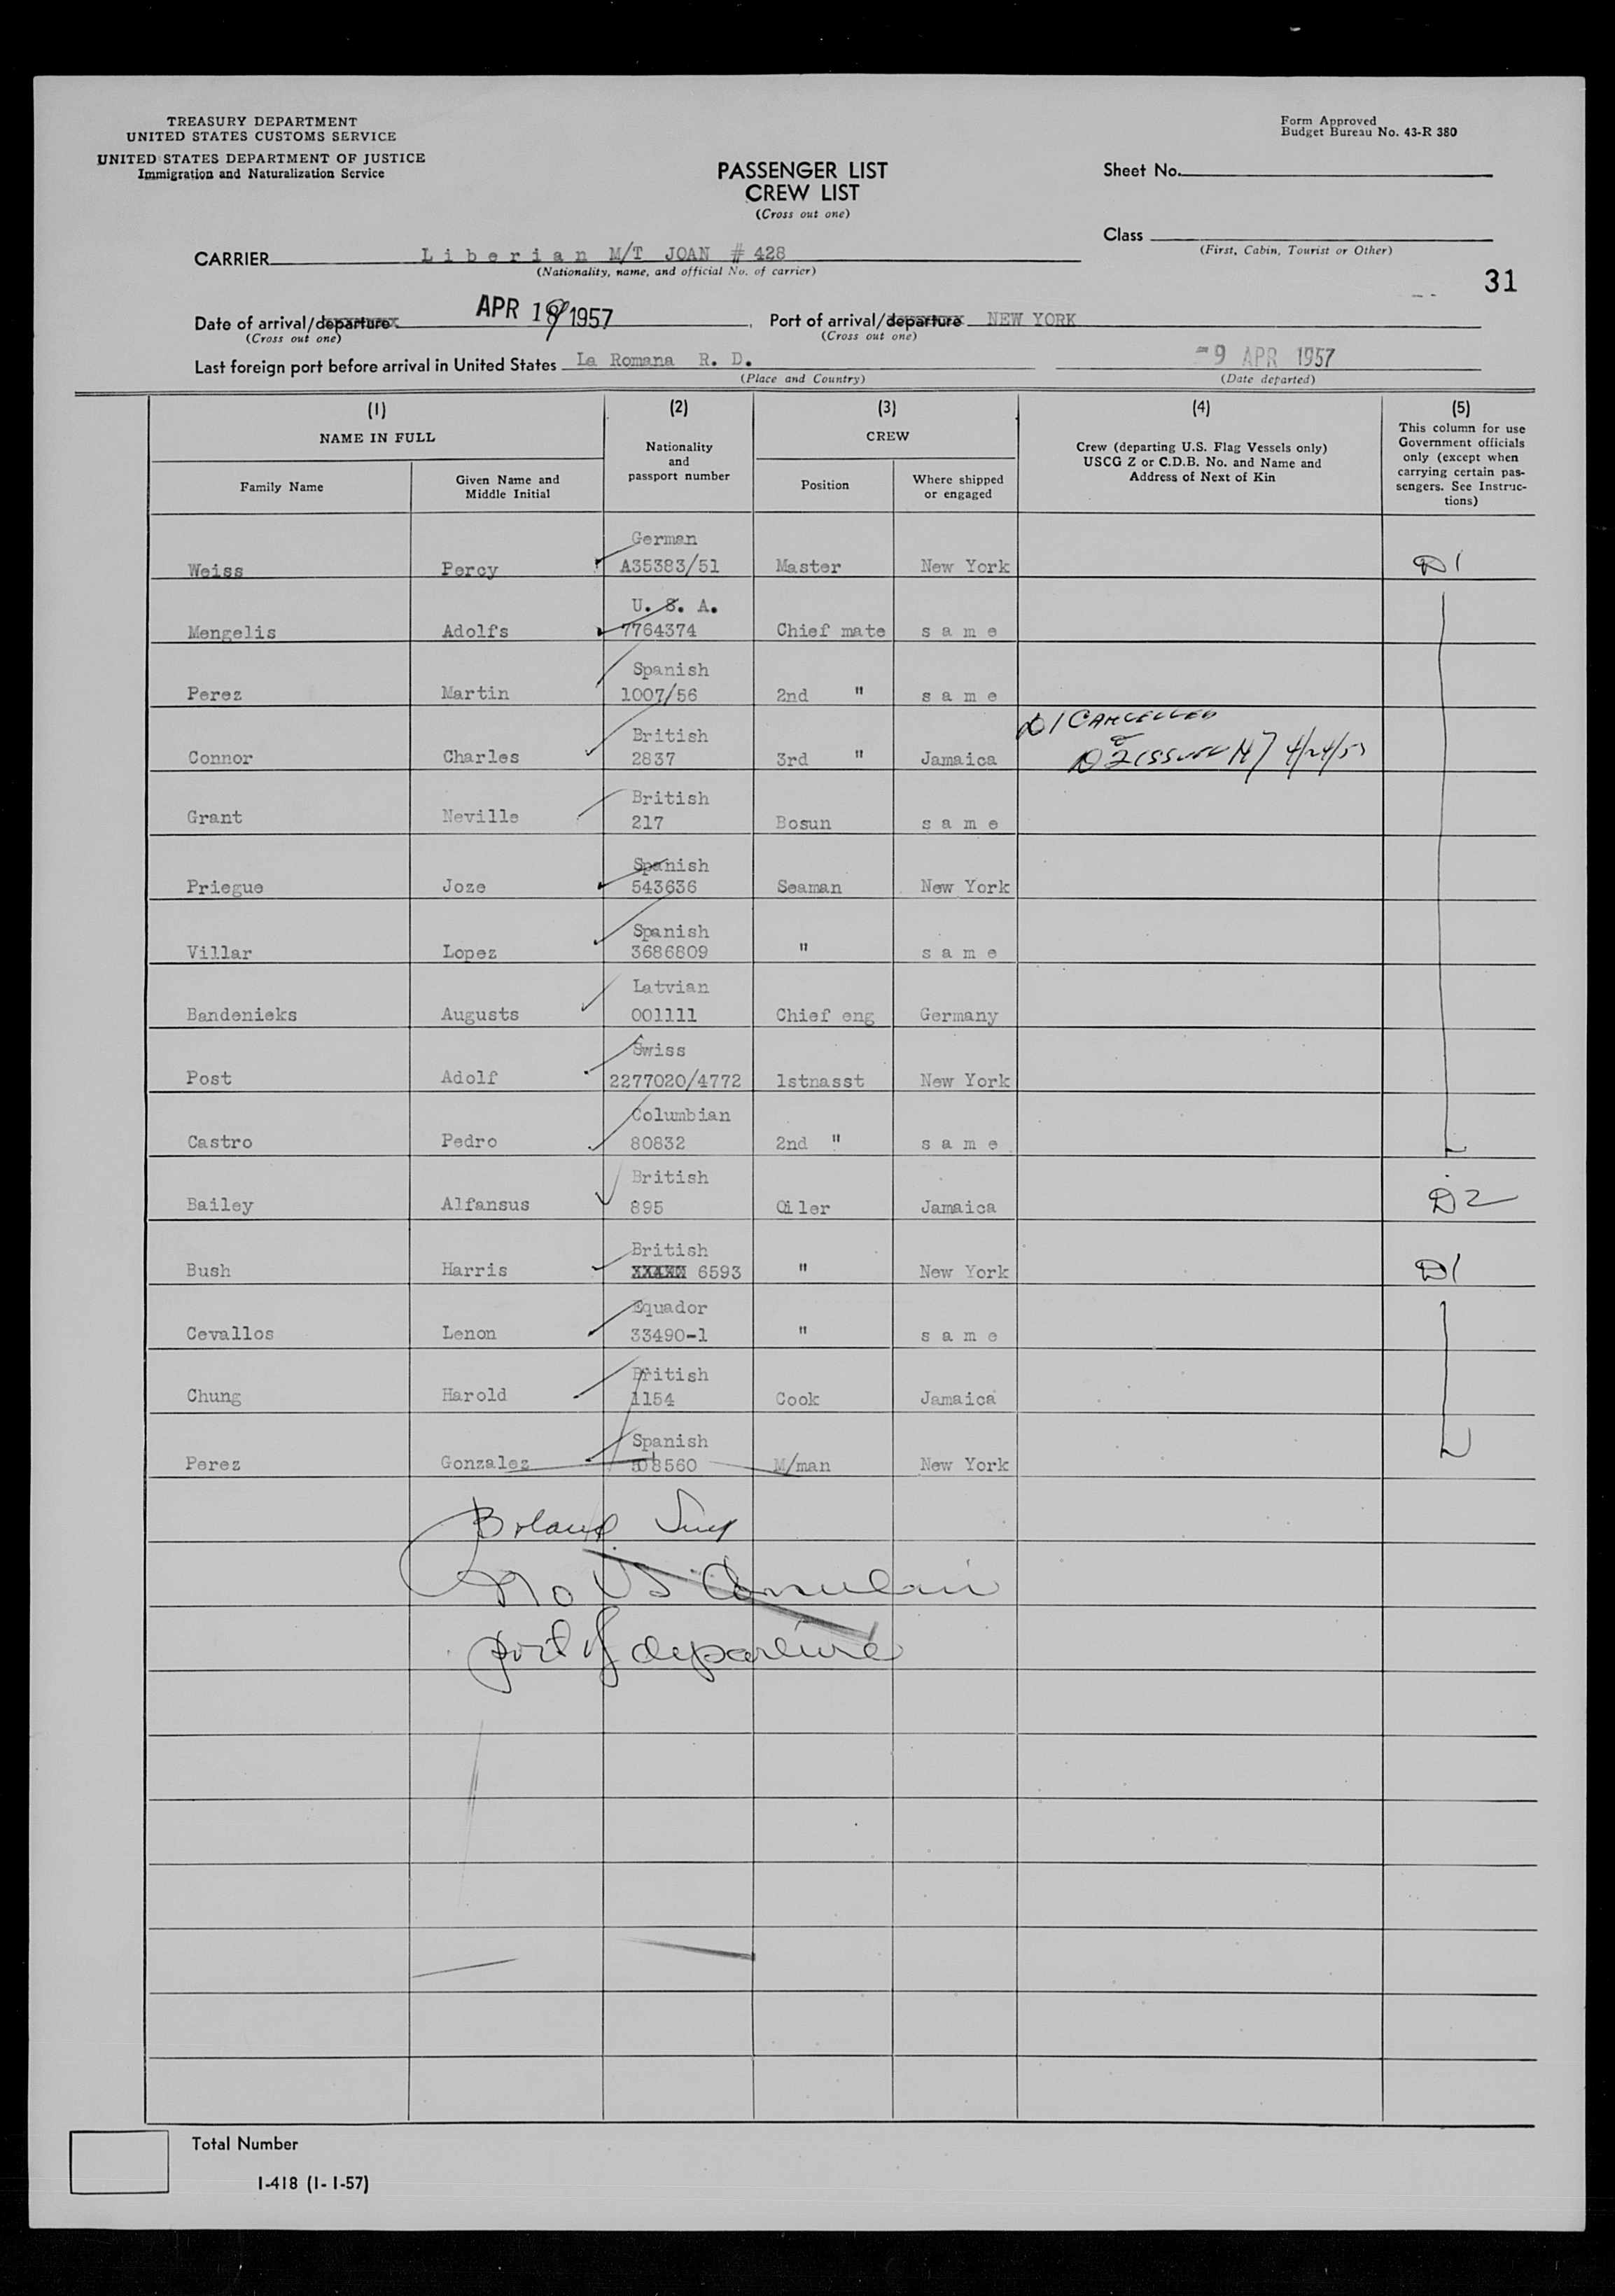 TREASURY DEPARTMENT
UNITED STATES CUSTOMS SERVICE
UNITED STATES DEPARTMENT OF JUSTICE
Immigration and Naturalization Service
Form Approved
Budget Bureau No. 43-R 380
PASSENGER LIST
CREW LIST
(Cross out one)
Sheet No.
Class
(First, Cabin, Tourist or Other)
CARRIER Liberian M/T JOAN # 428
(Nationality, name, and official No. of carrier)
31
Date of arrival/departure APR 1 1957 Port of arrival/departure NEW YORK
(Cross out one) (Cross out one)
Last foreign port before arrival in United States La Romana R. D. -9 APR 1957
(Place and Country) (Date departed)
(1) (2) (3) (4) (5)
NAME IN FULL
Family Name
Given Name and
Middle Initial
Nationality
and
passport number
CREW
Position
Where shipped
or engaged
Crew (departing U.S. Flag Vessels only)
USCG Z or C.D.B. No. and Name and
Address of Next of Kin
This column for use
Government officials
only (except when
carrying certain pas-
sengers. See Instruc-
tions)
German
Weiss Percy A35383/51 Master New York D1
U. S. A.
Mengelis Adolfs 7764374 Chief mate same
Spanish
Perez Martin 1007/56 2nd " same
D1 CANCELLED
British
Connor Charles 2837 3rd " Jamaica D2 ISSUED
British
Grant Neville 217 Bosun same
Spanish
Priegue Joze 543636 Seaman New York
Spanish
Villar Lopez 3686809 " same
Latvian
Bandenieks Augusts 001111 Chief eng Germany
Swiss
Post Adolf 2277020/4772 1stnasst New York
Columbian
Castro Pedro 80832 2nd " same
British
Bailey Alfansus 895 Oiler Jamaica D2
British
Bush Harris 6593 " New York D1
Equador
Cevallos Lenon 33490-1 " same
British
Chung Harold 1154 Cook Jamaica
Spanish
Perez Gonzalez 508560 M/man New York
No US Consul in
port of departure
Total Number
I-418 (1-1-57)